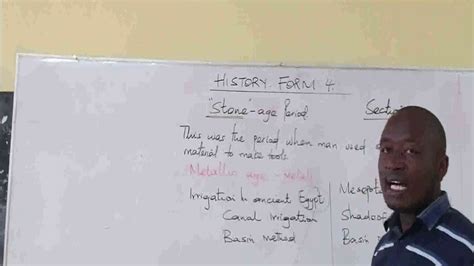 HISTORY FORM 4.
"Stone"-age Period
This was the period when man used
material to make tools.
Metallic age - metals
Irrigation in ancient Egypt
Canal irrigation
Basin method
Shadoof
Basin